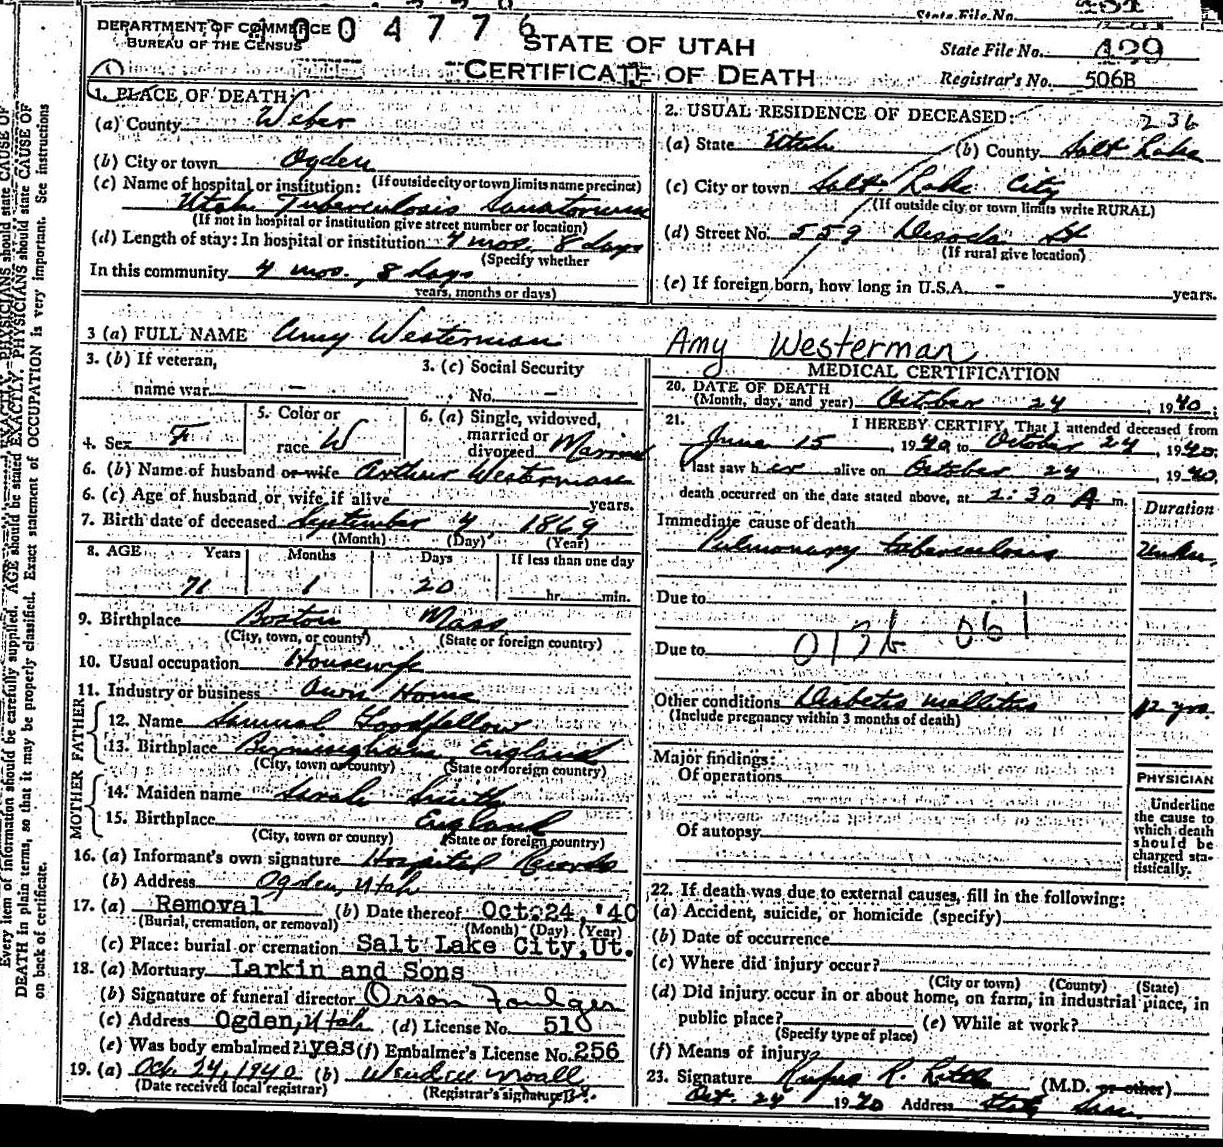 State File No.
1004776
DEPARTMENT OF COMMERCE
BUREAU OF THE CENSUS
STATE OF UTAH
CERTIFICATE OF DEATH
State File No. 429
Registrar's No. 506B
1. PLACE OF DEATH:
(a) County Weber
(b) City or town Ogden
(If outside city or town limits name precinct)
(c) Name of hospital or institution:
Utah Tuberculosis Sanatorium
(If not in hospital or institution give street number or location)
(d) Length of stay: In hospital or institution 4 mos. 8 days
(Specify whether
In this community 4 mos., 8 days
years, months or days)
2. USUAL RESIDENCE OF DECEASED: 236
(a) State Utah (b) County Salt Lake
(c) City or town Salt Lake City
(If outside city or town limits write RURAL)
(d) Street No. 559 St
(If rural give location)
(e) If foreign born, how long in U.S.A. - years.
3 (a) FULL NAME Amy Westerman
Amy Westerman
3. (b) If veteran,
name war -
3. (c) Social Security
No. -
4. Sex F
5. Color or
race W
6. (a) Single, widowed,
married or
divorced Married
6. (b) Name of husband or wife Arthur Westerman
6. (c) Age of husband or wife if alive years.
7. Birth date of deceased September 4 1869
(Month) (Day) (Year)
8. AGE Years Months Days If less than one day
71 1 20 hr. min.
9. Birthplace Boston Mass
(City, town, or county) (State or foreign country)
10. Usual occupation Housewife
11. Industry or business Own Home
FATHER
12. Name Samuel Goodfellow
13. Birthplace Birmingham England
(City, town or county) (State or foreign country)
MOTHER
14. Maiden name Sarah Smith
15. Birthplace England
(City, town or county) (State or foreign country)
16. (a) Informant's own signature Hospital Records
(b) Address Ogden, Utah
17. (a) Removal (b) Date thereof Oct. 24, '40
(Burial, cremation, or removal) (Month) (Day) (Year)
(c) Place: burial or cremation Salt Lake City, Ut.
18. (a) Mortuary Larkin and Sons
(b) Signature of funeral director Orson Foulger
(c) Address Ogden, Utah (d) License No. 510
(e) Was body embalmed? yes (f) Embalmer's License No. 256
19. (a) Oct. 24, 1940 (b)
(Date received local registrar) (Registrar's signature)
MEDICAL CERTIFICATION
20. DATE OF DEATH
(Month, day, and year) October 24, 1940;
21. I HEREBY CERTIFY, That I attended deceased from
June 15, 1940, to October 24, 1940.
I last saw her alive on October 24, 1940.
death occurred on the date stated above, at 2:30 A m.
Duration
Immediate cause of death
Pulmonary tuberculosis Unkn.
Due to
Due to 013b 061
Other conditions Diabetes mellitus 12 yrs.
(Include pregnancy within 3 months of death)
Major findings:
Of operations
Of autopsy
PHYSICIAN
Underline
the cause to
which death
should be
charged sta-
tistically.
22. If death was due to external causes, fill in the following:
(a) Accident, suicide, or homicide (specify)
(b) Date of occurrence
(c) Where did injury occur?
(City or town) (County) (State)
(d) Did injury occur in or about home, on farm, in industrial place, in
public place? (e) While at work?
(Specify type of place)
(f) Means of injury
23. Signature Rufus R. (M.D. or other)
Oct. 24 1940 Address State San.
Every item of information should be carefully supplied. AGE should be stated EXACTLY. PHYSICIANS should state CAUSE OF
DEATH in plain terms, so that it may be properly classified. Exact statement of OCCUPATION is very important. See instructions
on back of certificate.